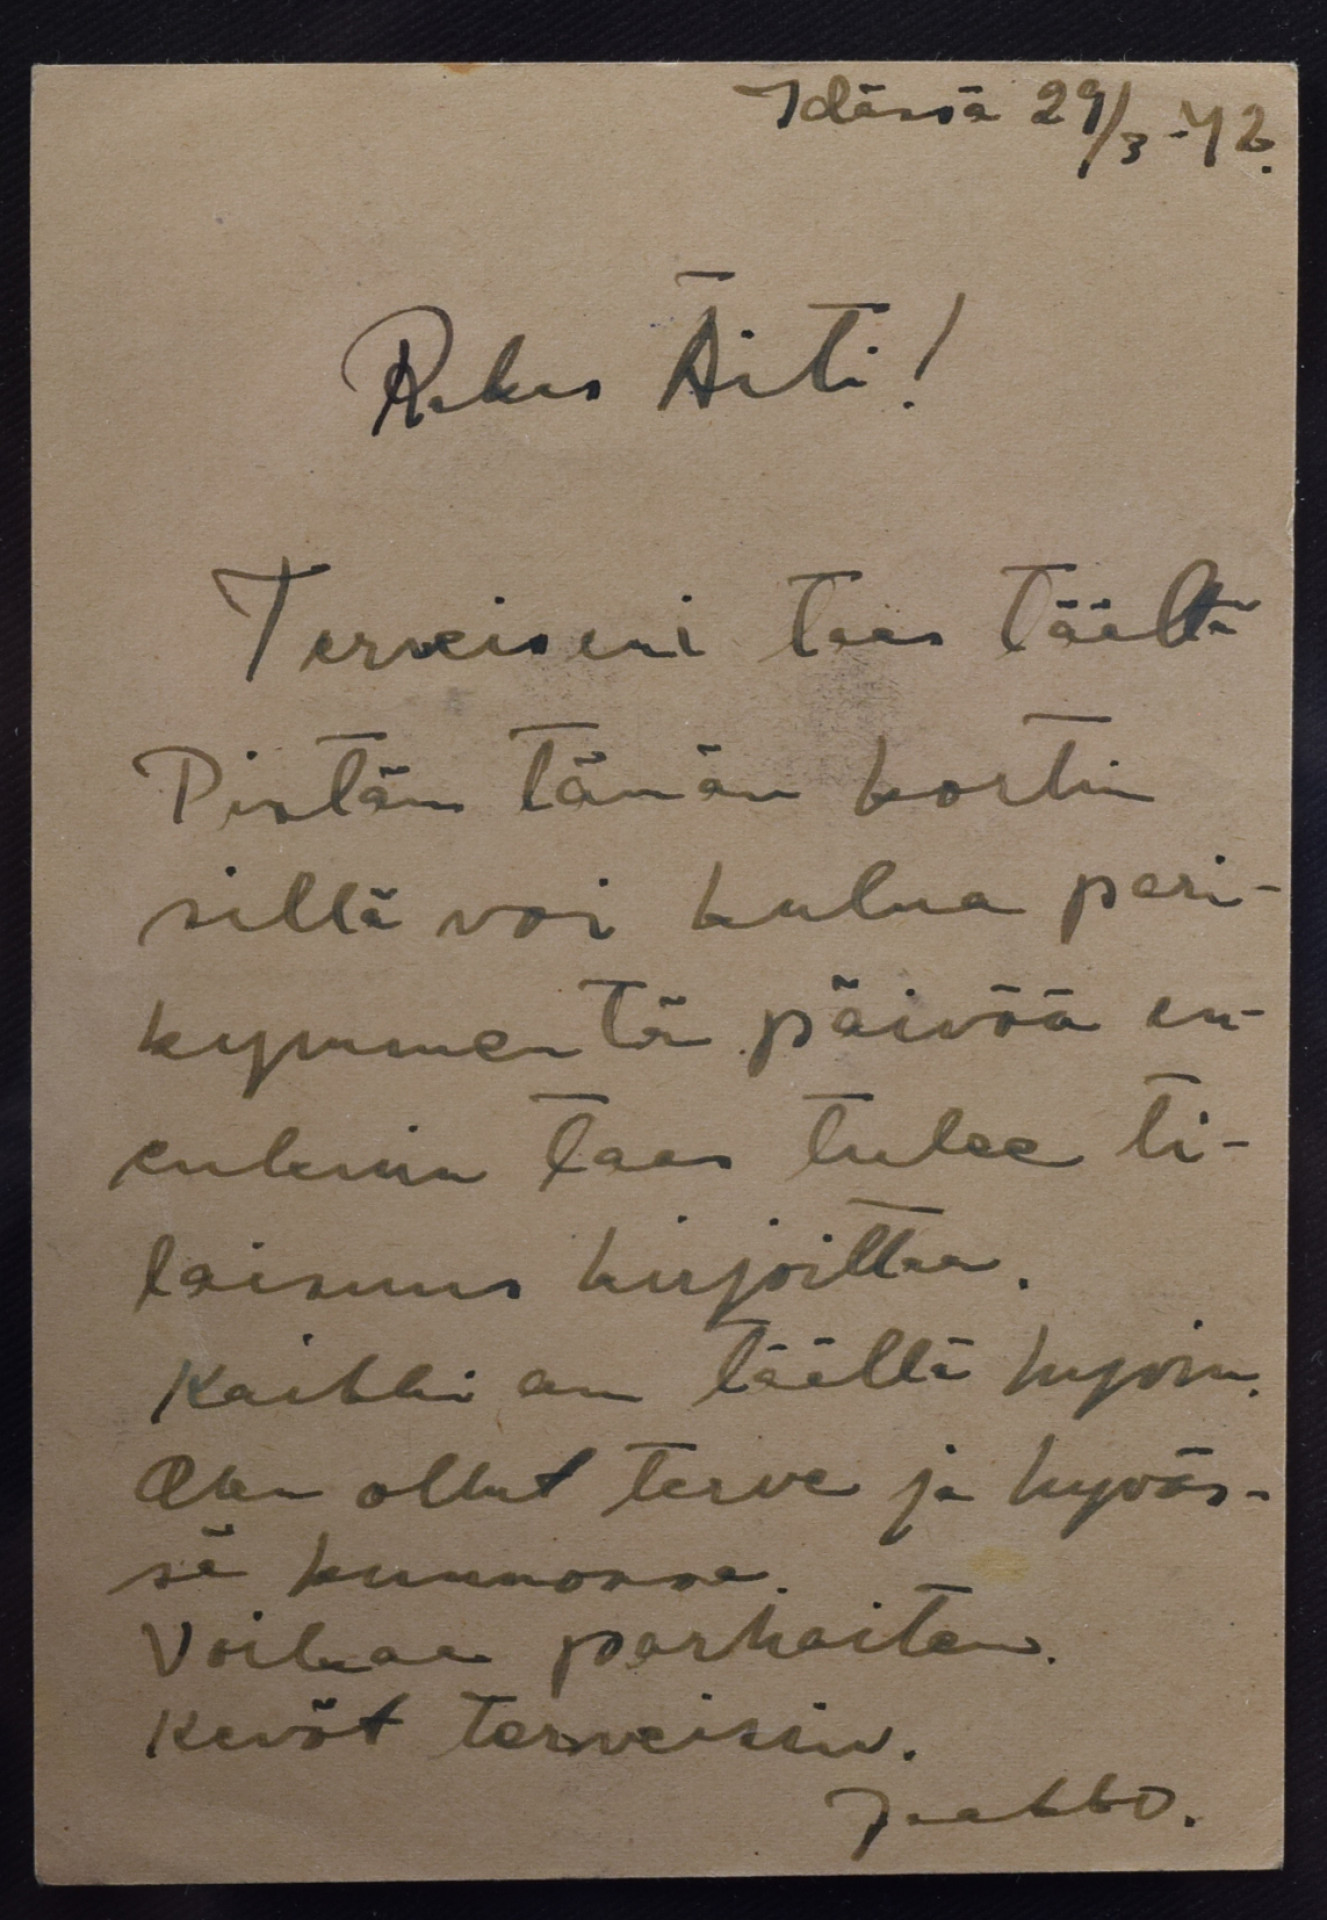 Idässä 29/3 -42.
Rakas Äiti!
Terveiseni taas täältä
Pistän tämän kortin
sillä voi kulua pari-
kymmentä päivää en-
enkuin taas tulee ti-
laisuus kirjoittaa.
Kaikki on täällä hyvin.
Olen ollut terve ja hyväs-
sä kunnossa.
Voikaa parhaiten.
Kevät terveisin.
Jaakko.